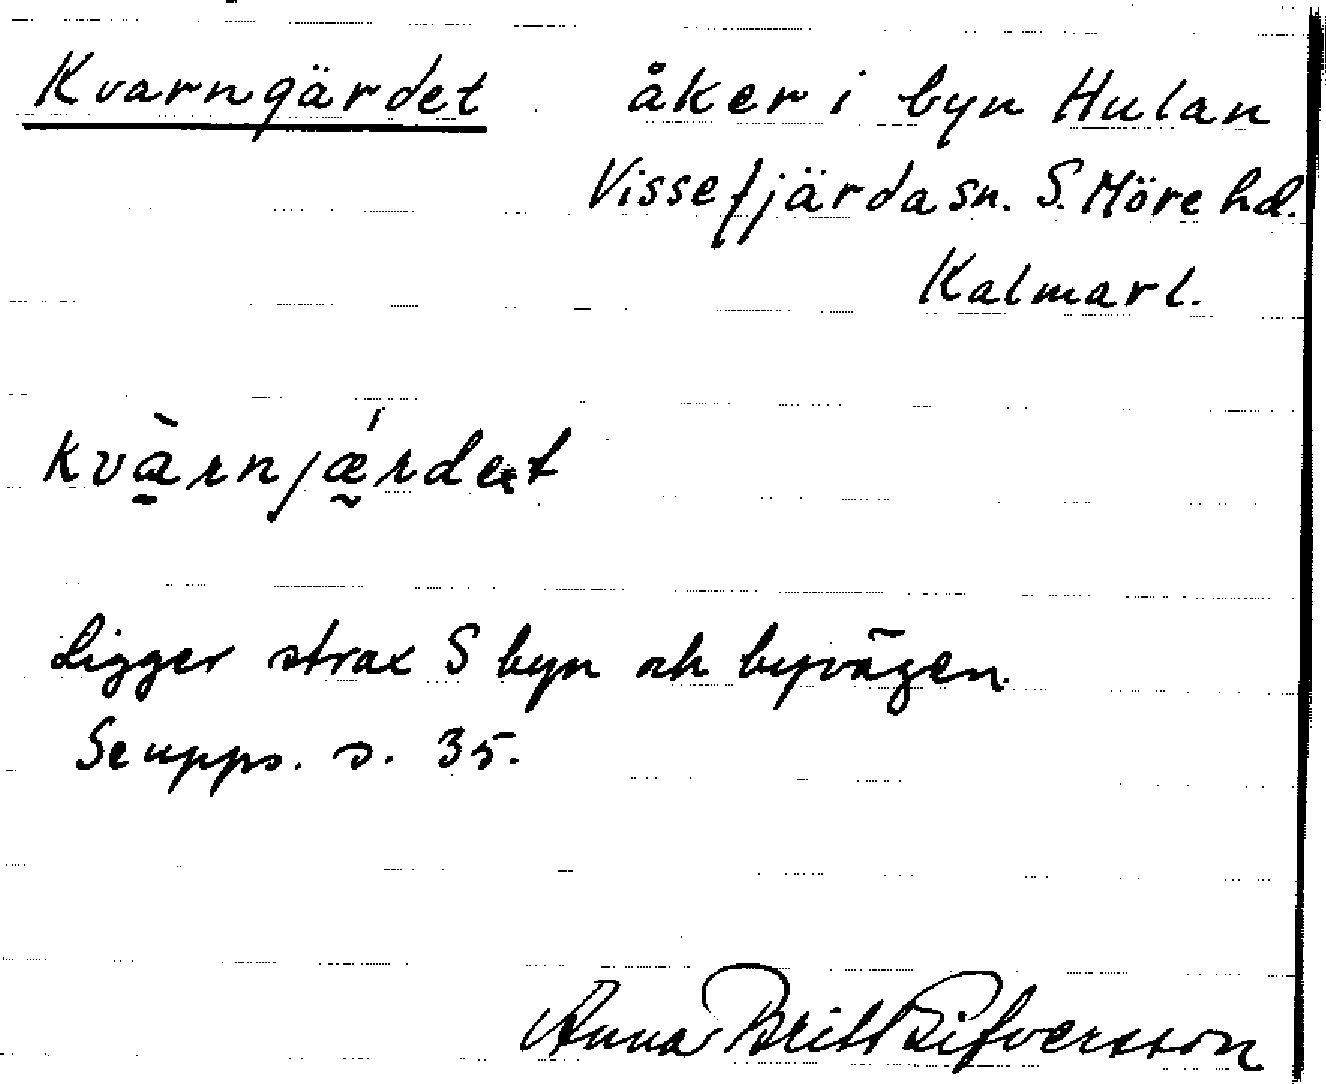 Kvarngärdet åker i byn Hulan
Vissefjärda sn. S. Möre hd.
Kalmar l.
kvà̱rnjǽ̰rdet
Ligger strax S byn och byvägen.
Se upps. s. 35.
Anna Britt Sifversson